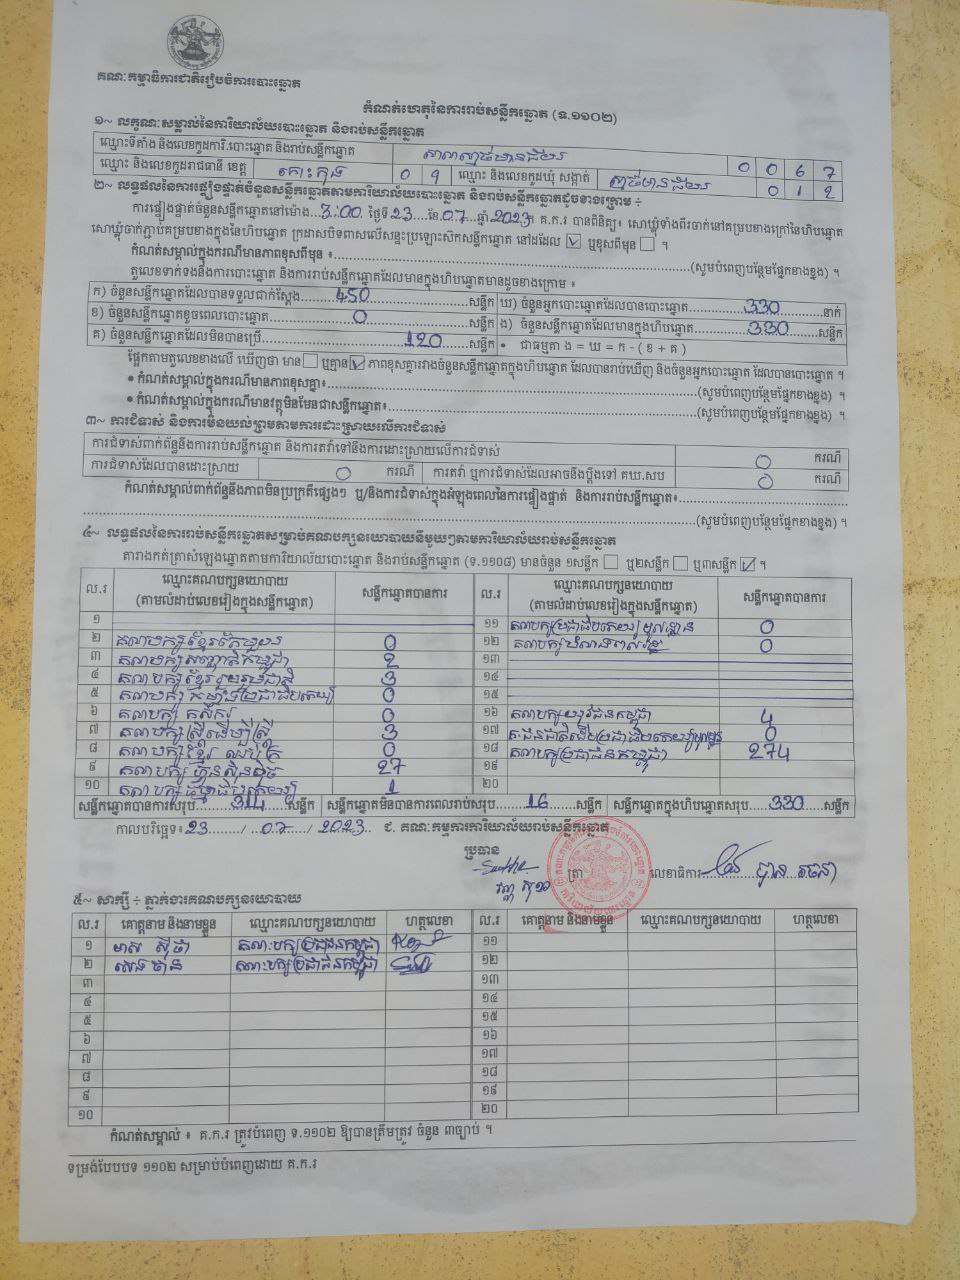 គណៈកម្មាធិការជាតិរៀបចំការបោះឆ្នោត
កំណត់ហេតុនៃការរាប់សន្លឹកឆ្នោត (ទ.១១០២)
១~ លក្ខណៈសម្គាល់នៃការិយាល័យបោះឆ្នោត និងរាប់សន្លឹកឆ្នោត
ឈ្មោះទីតាំង និងលេខកូដការិ.បោះឆ្នោត និងរាប់សន្លឹកឆ្នោត 0 0 6 7
ឈ្មោះ និងលេខកូដរាជធានី ខេត្ត កោះកុង 0 9 ឈ្មោះ និងលេខកូដឃុំ សង្កាត់ 0 1 2
២~ លទ្ធផលនៃការផ្ទៀងផ្ទាត់ចំនួនសន្លឹកឆ្នោតតាមការិយាល័យបោះឆ្នោត និងរាប់សន្លឹកឆ្នោតដូចខាងក្រោម ÷
ការផ្ទៀងផ្ទាត់ចំនួនសន្លឹកឆ្នោតនៅម៉ោង...3:00 ថ្ងៃទី23...ខែ.07...ឆ្នាំ.2023។ គ.ក.រ បានពិនិត្យ៖ សោឃ្លុំទាំងពីរចាក់នៅគម្របខាងក្រៅនៃហិបឆ្នោត
សោឃ្លុំចាក់ភ្ជាប់គម្របខាងក្នុងនៃហិបឆ្នោត ក្រដាសបិទពាសលើសន្ទះប្រឡោះស៊កសន្លឹកឆ្នោត នៅដដែល ☑ ឬខុសពីមុន ☐ ។
កំណត់សម្គាល់ក្នុងករណីមានភាពខុសពីមុន ៖......(សូមបំពេញបន្ថែមផ្នែកខាងខ្នង) ។
តួលេខទាក់ទងនឹងការបោះឆ្នោត និងការរាប់សន្លឹកឆ្នោតដែលមានក្នុងហិបឆ្នោតមានដូចខាងក្រោម ៖
ក) ចំនួនសន្លឹកឆ្នោតដែលបានទទួលជាក់ស្តែង......450......សន្លឹក ឃ) ចំនួនអ្នកបោះឆ្នោតដែលបានបោះឆ្នោត......330......នាក់
ខ) ចំនួនសន្លឹកឆ្នោតខូចពេលបោះឆ្នោត......0......សន្លឹក ង) ចំនួនសន្លឹកឆ្នោតដែលមានក្នុងហិបឆ្នោត......330......សន្លឹក
គ) ចំនួនសន្លឹកឆ្នោតដែលមិនបានប្រើ......120......សន្លឹក • ជាធម្មតា ង = ឃ = ក - ( ខ + គ )
ផ្អែកតាមតួលេខខាងលើ ឃើញថា មាន ☐ ឬគ្មាន ☑ ភាពខុសគ្នារវាងចំនួនសន្លឹកឆ្នោតក្នុងហិបឆ្នោត ដែលបានរាប់ឃើញ និងចំនួនអ្នកបោះឆ្នោត ដែលបានបោះឆ្នោត ។
• កំណត់សម្គាល់ក្នុងករណីមានភាពខុសគ្នា៖......(សូមបំពេញបន្ថែមផ្នែកខាងខ្នង) ។
• កំណត់សម្គាល់ក្នុងករណីមានវត្ថុមិនមែនជាសន្លឹកឆ្នោត៖......(សូមបំពេញបន្ថែមផ្នែកខាងខ្នង) ។
៣~ ការជំទាស់ និងការមិនយល់ព្រមតាមការដោះស្រាយលើការជំទាស់
ការជំទាស់ពាក់ព័ន្ធនឹងការរាប់សន្លឹកឆ្នោត និងការតវ៉ាទៅនឹងការដោះស្រាយលើការជំទាស់ 0 ករណី
ការជំទាស់ដែលបានដោះស្រាយ 0 ករណី ការតវ៉ា ឬការជំទាស់ដែលអាចនឹងប្តឹងទៅ គឃ.សប 0 ករណី
កំណត់សម្គាល់ពាក់ព័ន្ធនឹងភាពមិនប្រក្រតីផ្សេងៗ ឬ/និងការជំទាស់ក្នុងអំឡុងពេលនៃការផ្ទៀងផ្ទាត់ និងការរាប់សន្លឹកឆ្នោត៖......
......(សូមបំពេញបន្ថែមផ្នែកខាងខ្នង) ។
៤~ លទ្ធផលនៃការរាប់សន្លឹកឆ្នោតសម្រាប់គណបក្សនយោបាយនីមួយៗតាមការិយាល័យរាប់សន្លឹកឆ្នោត
តារាងកត់ត្រាសំឡេងឆ្នោតតាមការិយាល័យបោះឆ្នោត និងរាប់សន្លឹកឆ្នោត (ទ.១១០៨) មានចំនួន ១សន្លឹក ☐ ឬ២សន្លឹក ☐ ឬ៣សន្លឹក ☑ ។
ល.រ ឈ្មោះគណបក្សនយោបាយ (តាមលំដាប់លេខរៀងក្នុងសន្លឹកឆ្នោត) សន្លឹកឆ្នោតបានការ ល.រ ឈ្មោះគណបក្សនយោបាយ (តាមលំដាប់លេខរៀងក្នុងសន្លឹកឆ្នោត) សន្លឹកឆ្នោតបានការ
១ ១១ គណបក្សប្រជាធិបតេយ្យមូលដ្ឋាន 0
២ គណបក្សខ្មែរតែមួយ 0 ១២ 0
៣ គណបក្សសញ្ជាតិកម្ពុជា 2 ១៣
៤ គណបក្សខ្មែររួបរួមជាតិ 3 ១៤
៥ គណបក្ស កម្លាំងប្រជាធិបតេយ្យ 0 ១៥
៦ គណបក្ស កសិករ 0 ១៦ គណបក្សយុវជនកម្ពុជា 4
៧ គណបក្សស្ត្រីដើម្បីស្ត្រី 3 ១៧ 0
៨ គណបក្សខ្មែរ ឈប់ក្រ 0 ១៨ គណបក្សប្រជាជនកម្ពុជា 274
៩ គណបក្ស ហ៊្វុនស៊ិនប៉ិច 27 ១៩
១០ គណបក្ស ធម្មាធិបតេយ្យ 1 ២០
សន្លឹកឆ្នោតបានការសរុប......314......សន្លឹក សន្លឹកឆ្នោតមិនបានការពេលរាប់សរុប......16......សន្លឹក សន្លឹកឆ្នោតក្នុងហិបឆ្នោតសរុប......330......សន្លឹក
កាលបរិច្ឆេទ៖ 23....../...07....../ 2023.. ជ. គណៈកម្មការការិយាល័យរាប់សន្លឹកឆ្នោត
ប្រធាន
ត្រា លេខាធិការ
៥~ សាក្សី ÷ ភ្នាក់ងារគណបក្សនយោបាយ
ល.រ គោត្តនាម និងនាមខ្លួន ឈ្មោះគណបក្សនយោបាយ ហត្ថលេខា ល.រ គោត្តនាម និងនាមខ្លួន ឈ្មោះគណបក្សនយោបាយ ហត្ថលេខា
១ គណៈបក្សប្រជាជនកម្ពុជា ១១
២ គណៈបក្សប្រជាជនកម្ពុជា ១២
៣ ១៣
៤ ១៤
៥ ១៥
៦ ១៦
៧ ១៧
៨ ១៨
៩ ១៩
១០ ២០
កំណត់សម្គាល់ ៖ គ.ក.រ ត្រូវបំពេញ ទ.១១០២ ឱ្យបានត្រឹមត្រូវ ចំនួន ៣ច្បាប់ ។
ទម្រង់បែបបទ ១១០២ សម្រាប់បំពេញដោយ គ.ក.រ